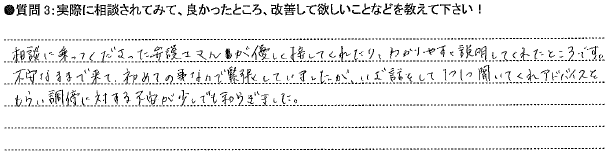 ●質問3:実際に相談されてみて、良かったところ、改善して欲しいことなどを教えて下さい!
相談に乗ってくださった弁護士さんが優しく接してくれたり、わかりやすく説明してくれたところです。
不安なままで来て、初めての事なので緊張していましたが、いざ話をして1つ1つ聞いてくれアドバイスを
もらい調停に対する不安が少しでも和らぎました。